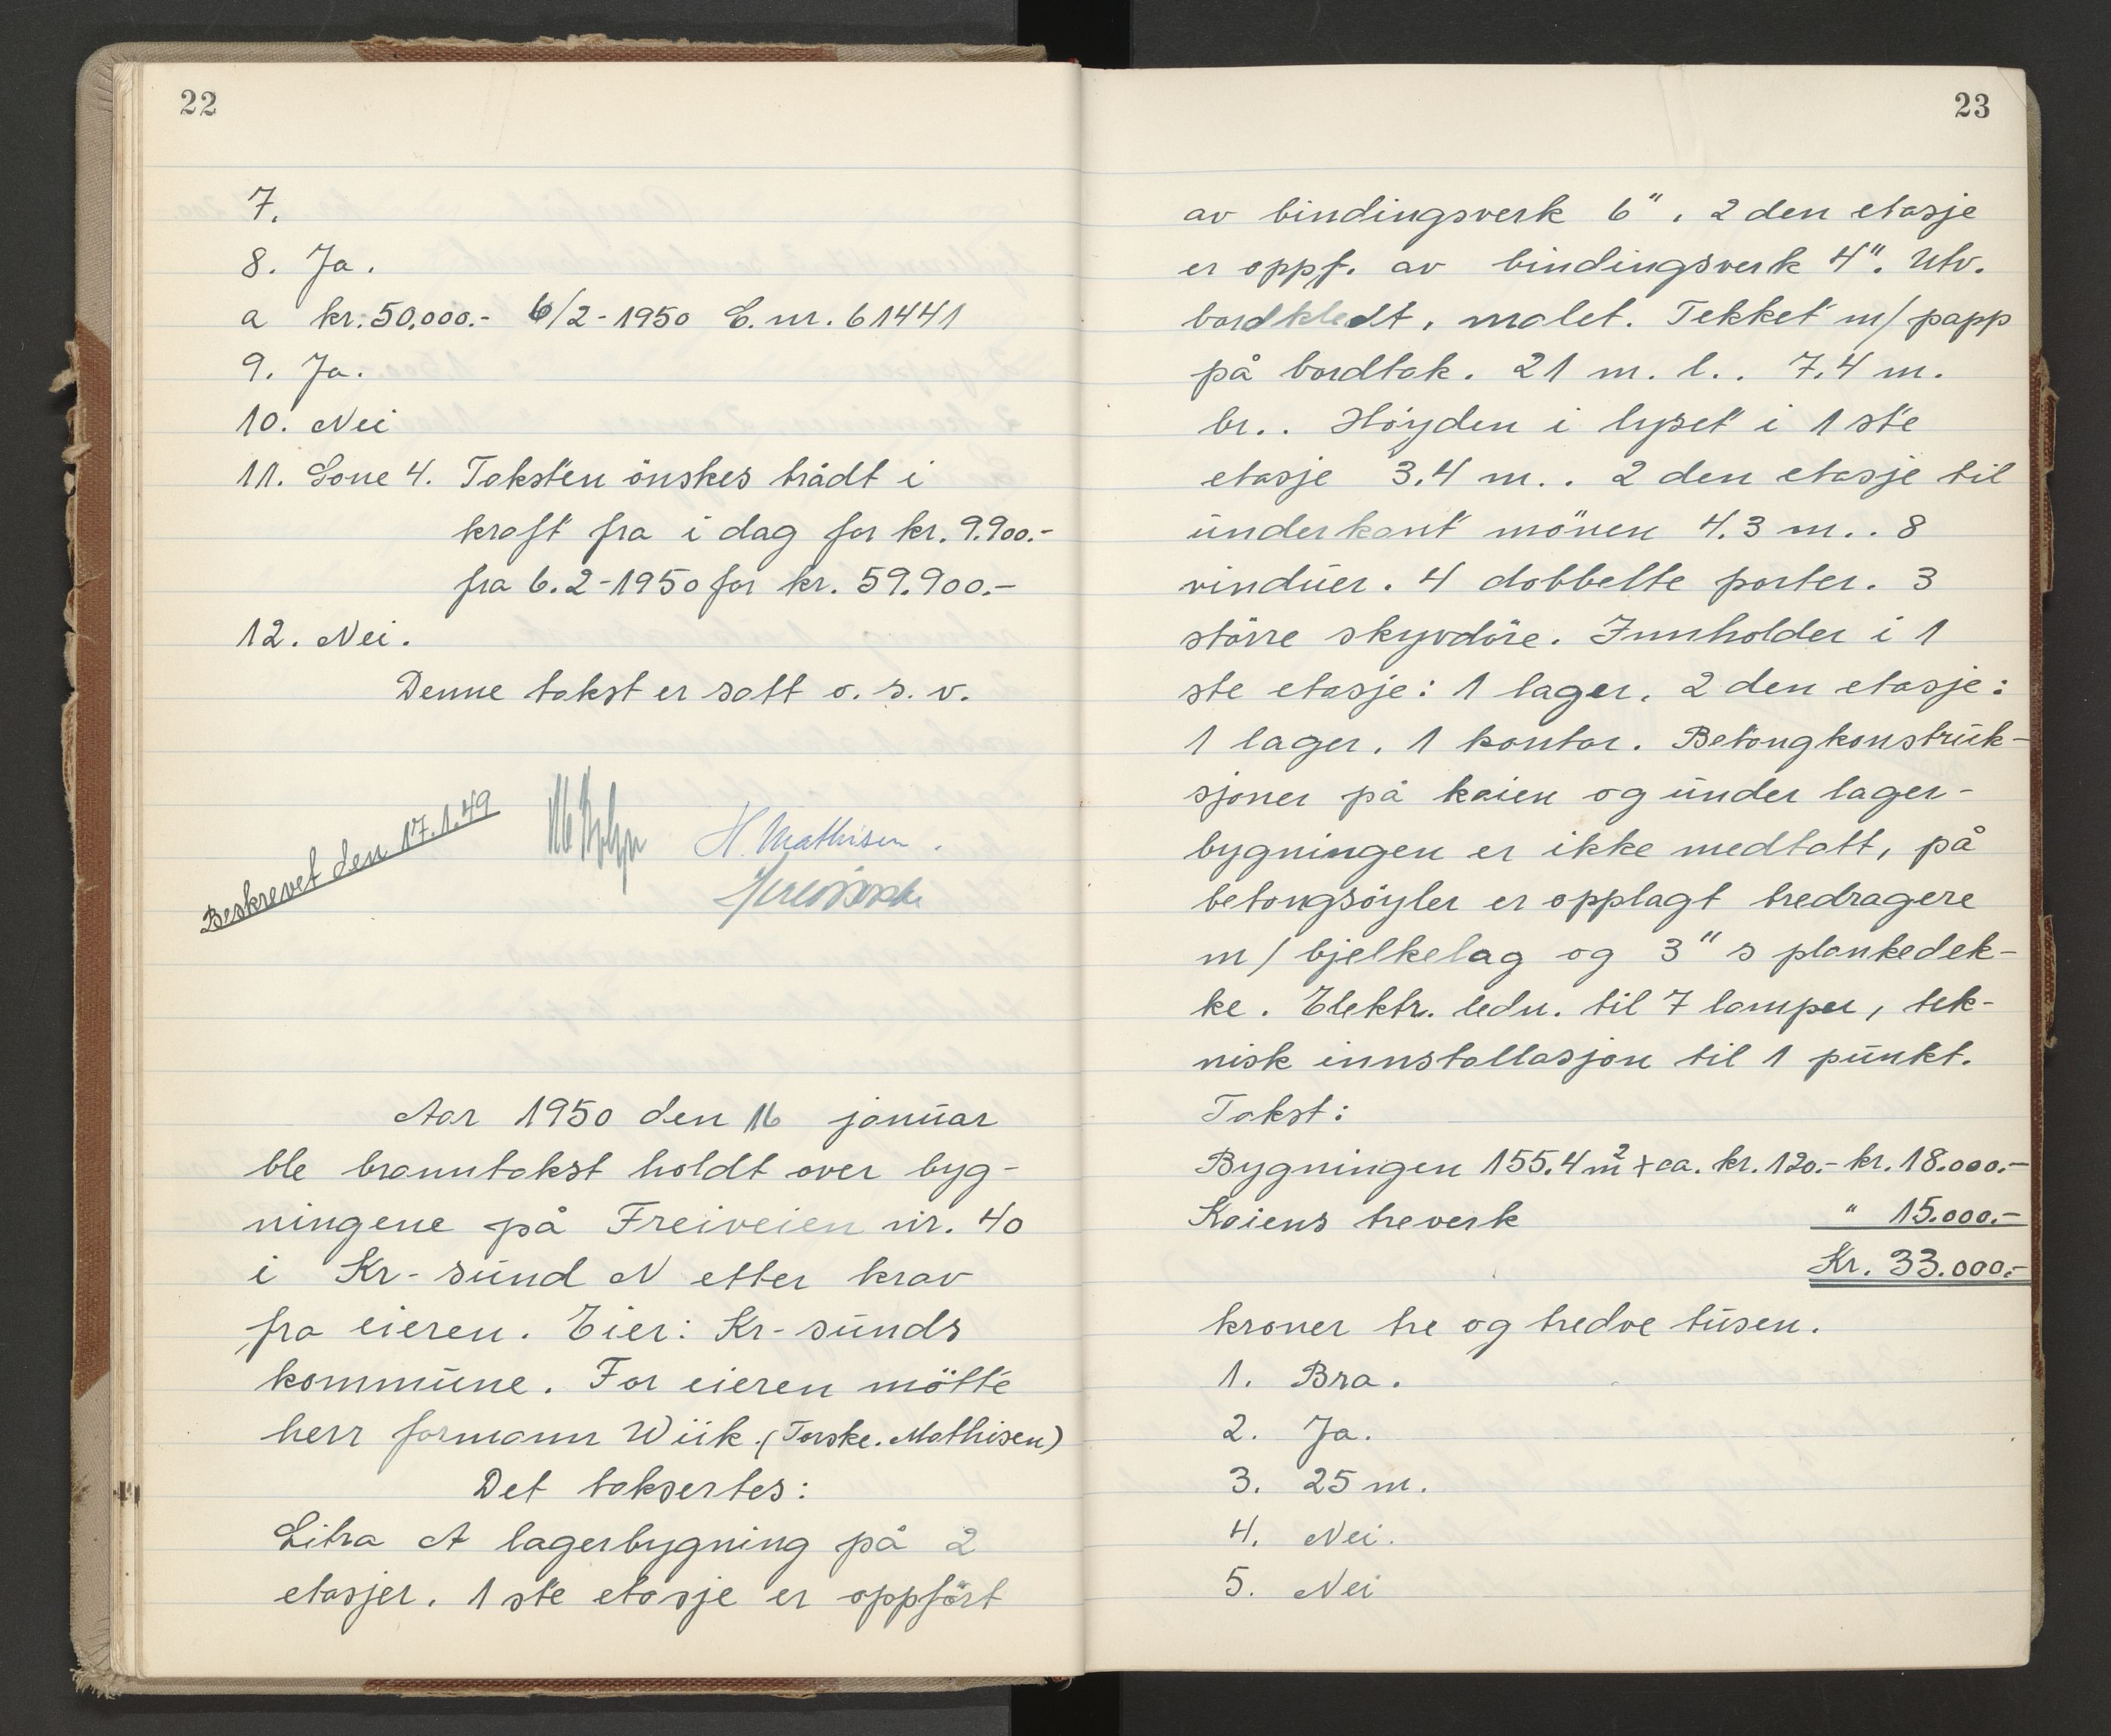 22
7.
8. Ja.
a kr. 50.000.- 6/2-1950 E.nr. 61441
9. Ja.
10. Nei
11. Sone 4. Taksten önskes trådt i
kraft fra i dag for kr. 9.900.-
fra 6.2-1950 for kr. 59.900.-
12. Nei.
Denne takst er satt o. s. v.
Beskrevet den 17.1.49
H. Mathisen.
Aar 1950 den 16 januar
ble branntakst holdt over byg-
ningene på Freiveien nr. 40
i Kr-sund N etter krav
fra eieren. Eier: Kr-sunds
kommune. For eieren mötte
herr formann Wiik. (Torske. Mathisen)
Det taksertes:
Litra A lagerbygning på 2
etasjer. 1 ste etasje er oppfört
23
av bindingsverk 6". 2 den etasje
er oppf. av bindingsverk 4". Utv.
bordkledt, malet. Tekket m/ papp
på bordtak. 21 m. l.. 7.4 m.
br.. Höyden i lyset i 1 ste
etasje 3.4 m.. 2 den etasje til
underkant mönen 4.3 m.. 8
vinduer. 4 dobbelte porter. 3
större skyvdöre. Innholder i 1
ste etasje: 1 lager. 2 den etasje:
1 lager. 1 kontor. Betongkonstruk-
sjoner på kaien og under lager-
bygningen er ikke medtatt, på
betongsöyler er opplagt tredragere
m/ bjelkelag og 3" s plankedek-
ke. Elektr. ledn. til 7 lamper, tek-
nisk innstallasjon til 1 punkt.
Takst:
Bygningen 155.4 m² + ca. kr. 120.- kr. 18.000.-
Kaiens treverk " 15.000.-
Kr. 33.000.-
kroner tre og tredve tusen.
1. Bra.
2. Ja.
3. 25 m.
4. Nei.
5. Nei